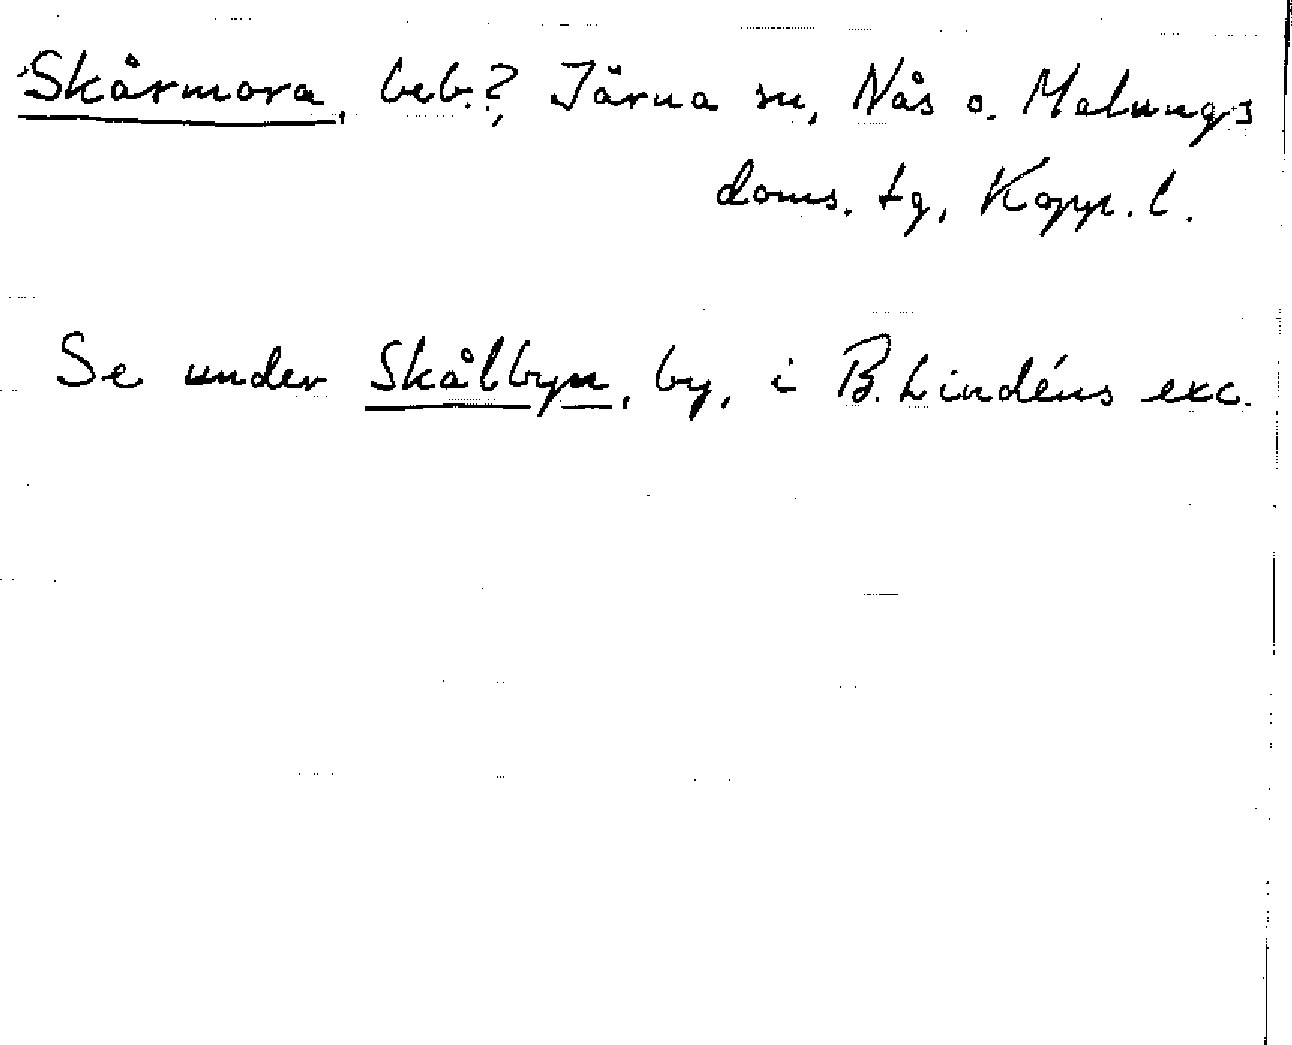 Skårmora, beb.? Järna sn, Nås o. Malungs
doms. tg, Kopp. l.
Se under Skålbyn, by, i B. Lindéns exc.